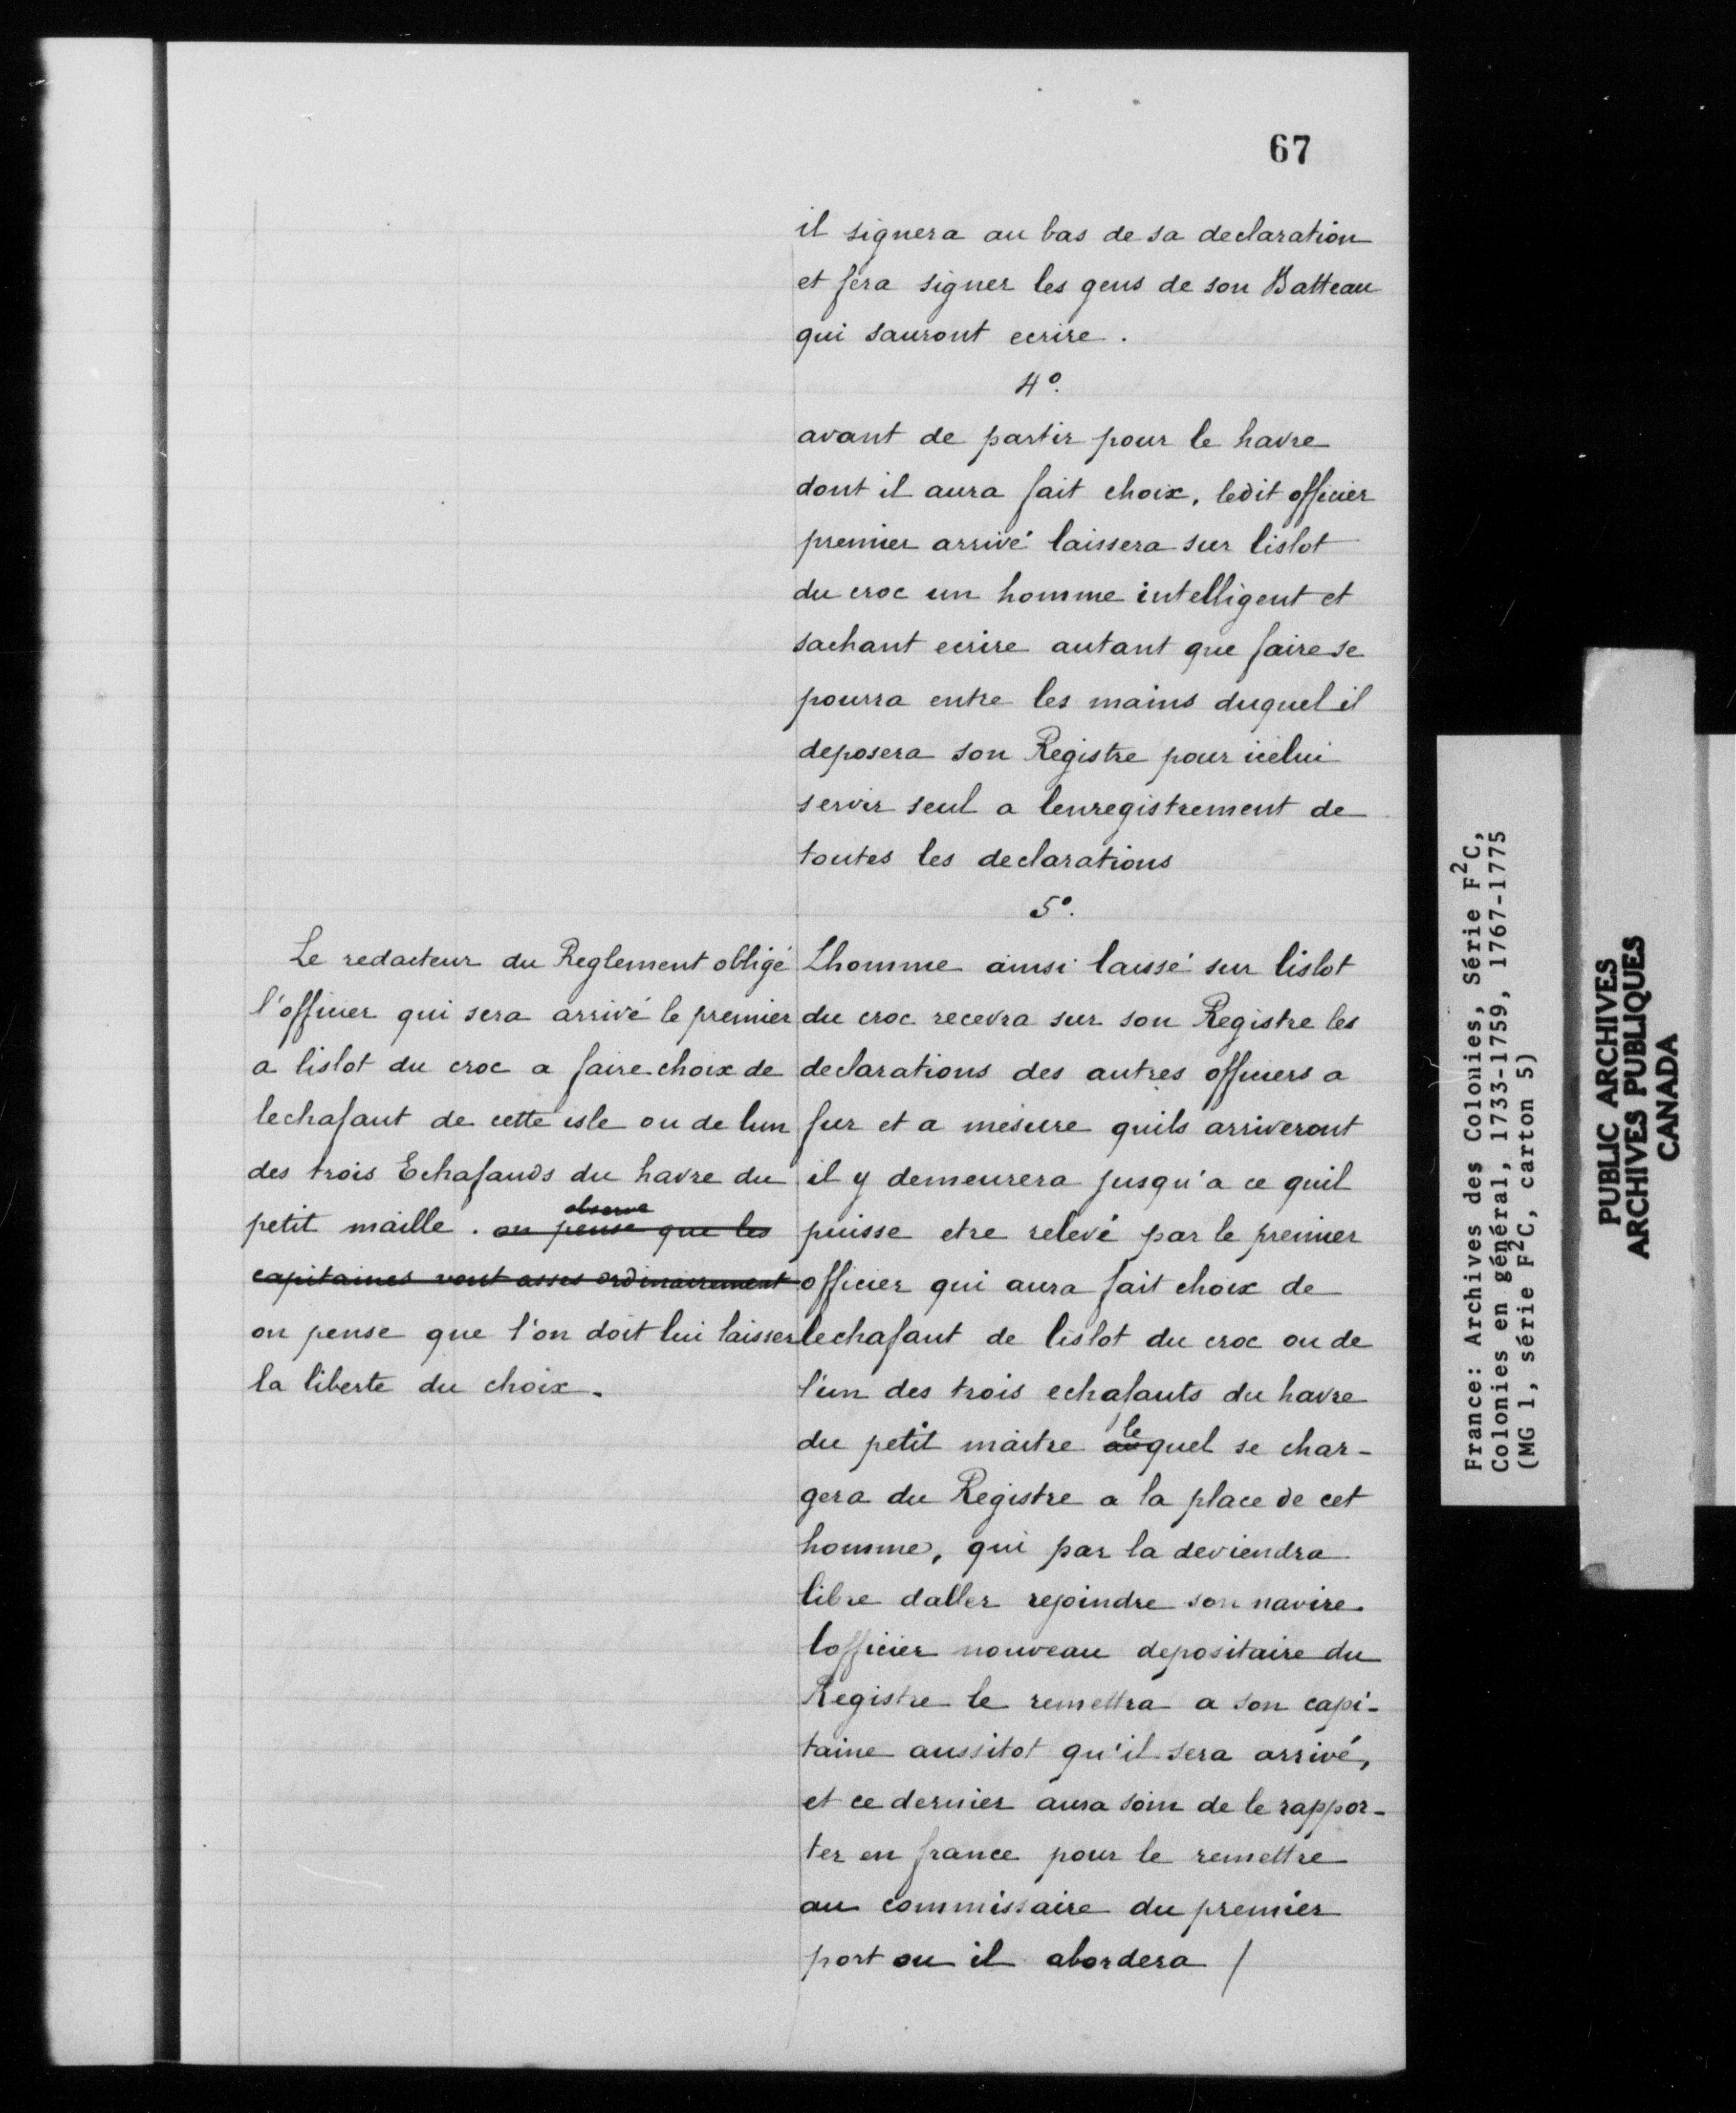 67
il signera au bas de sa declaration
et fera signer les gens de son Batteau
qui sauront ecrire.
4º.
avant de partir pour le havre
dont il aura fait choix, ledit officier
premier arrivé laissera sur lislot
du croc un homme intelligent et
sachant ecrire autant que faire se
pourra entre les mains duquel il
deposera son Registre pour icelui
servir seul a lenregistrement de
toutes les declarations
5º.
Lhomme ainsi laissé sur lislot
du croc recevra sur son Registre les
declarations des autres officiers a
fur et a mesure quils arriveront
il y demeurera jusqu'a ce quil
puisse etre relevé par le premier
officier qui aura fait choix de
lechafaut de lislot du croc ou de
l'un des trois echafauts du havre
du petit maitre au le quel se char-
gera du Registre a la place de cet
homme, qui par la deviendra
libre daller rejoindre son navire.
lofficier nouveau depositaire du
Registre le remettra a son capi-
taine aussitot qu'il sera arrivé,
et ce dernier aura soin de le rappor-
ter en france pour le remettre
au commissaire du premier
port ou il abordera /
Le redacteur du Reglement obligé
l'officier qui sera arrivé le premier
a lislot du croc a faire choix de
lechafaut de cette isle ou de lun
des trois Echafauds du havre du
petit maille. on pense observe que les
capitaines vont asses ordinairement
on pense que l'on doit lui laisser
la liberte du choix.
France: Archives des Colonies, Série F²C,
Colonies en général, 1733-1759, 1767-1775
(MG 1, série F²C, carton 5)
PUBLIC ARCHIVES
ARCHIVES PUBLIQUES
CANADA